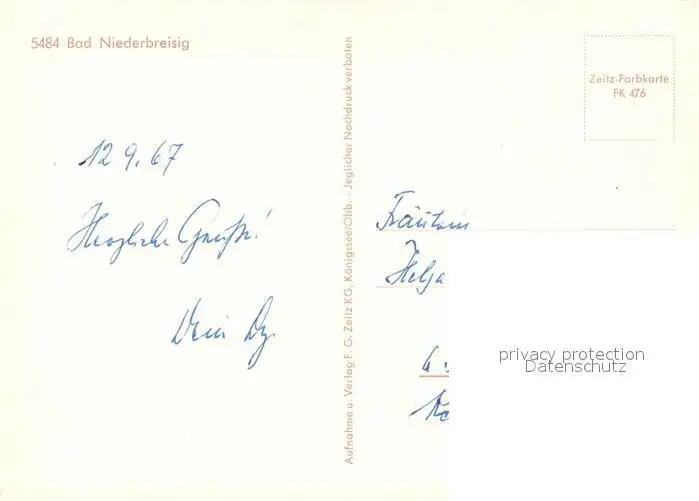 5484 Bad Niederbreisig
12 9. 67
Herzliche Grüße!
Dein
Aufnahme u. Verlag F. G. Zeitz KG, Königssee/Obb. - Jeglicher Nachdruck verboten
Zeitz-Farbkarte
FK 476
Fräulein
Helga
6
privacy protection
Datenschutz